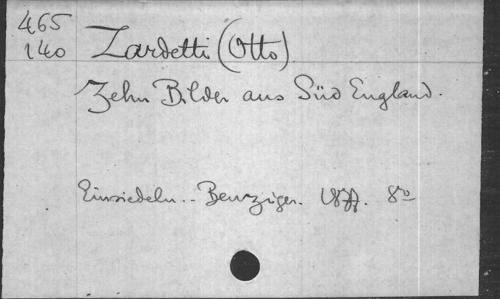 465
140 Zardetti (Otto).
Zehn Bilder aus Süd England.
Einsiedeln.. Benziger. 1877. 8°